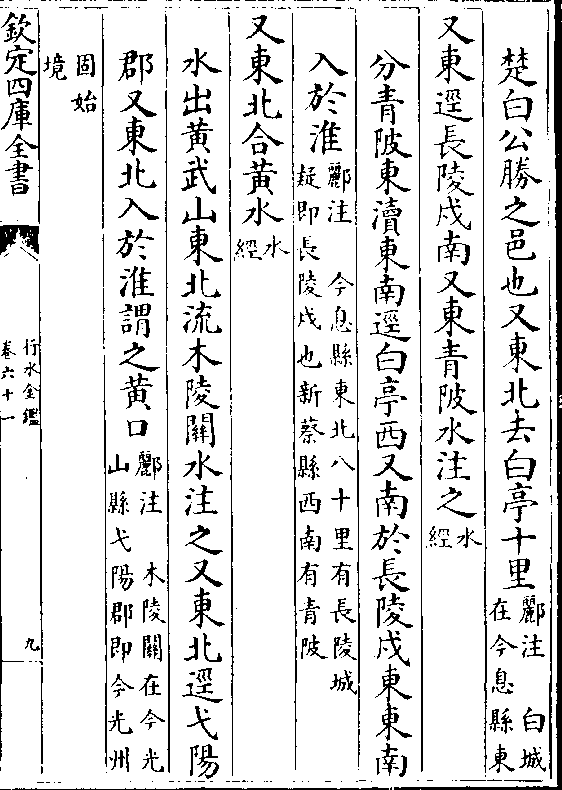 楚白公勝之邑也又東北去白亭十里酈注　白城
在今息縣東
又東逕長陵戍南又東青陂水注之水
經
分青陂東瀆東南逕白亭西又南於長陵戍東東南
入於淮酈注　今息縣東北八十里有長陵城
疑即長陵戍也新蔡縣西南有青陂
又東北合黄水水
經
水出黄武山東北流木陵關水注之又東北逕弋陽
郡又東北入於淮謂之黄口酈注　木陵關在今光
山縣弋陽郡即今光州
固始
境
欽定四庫全書
行水金鑑
卷六十一
九